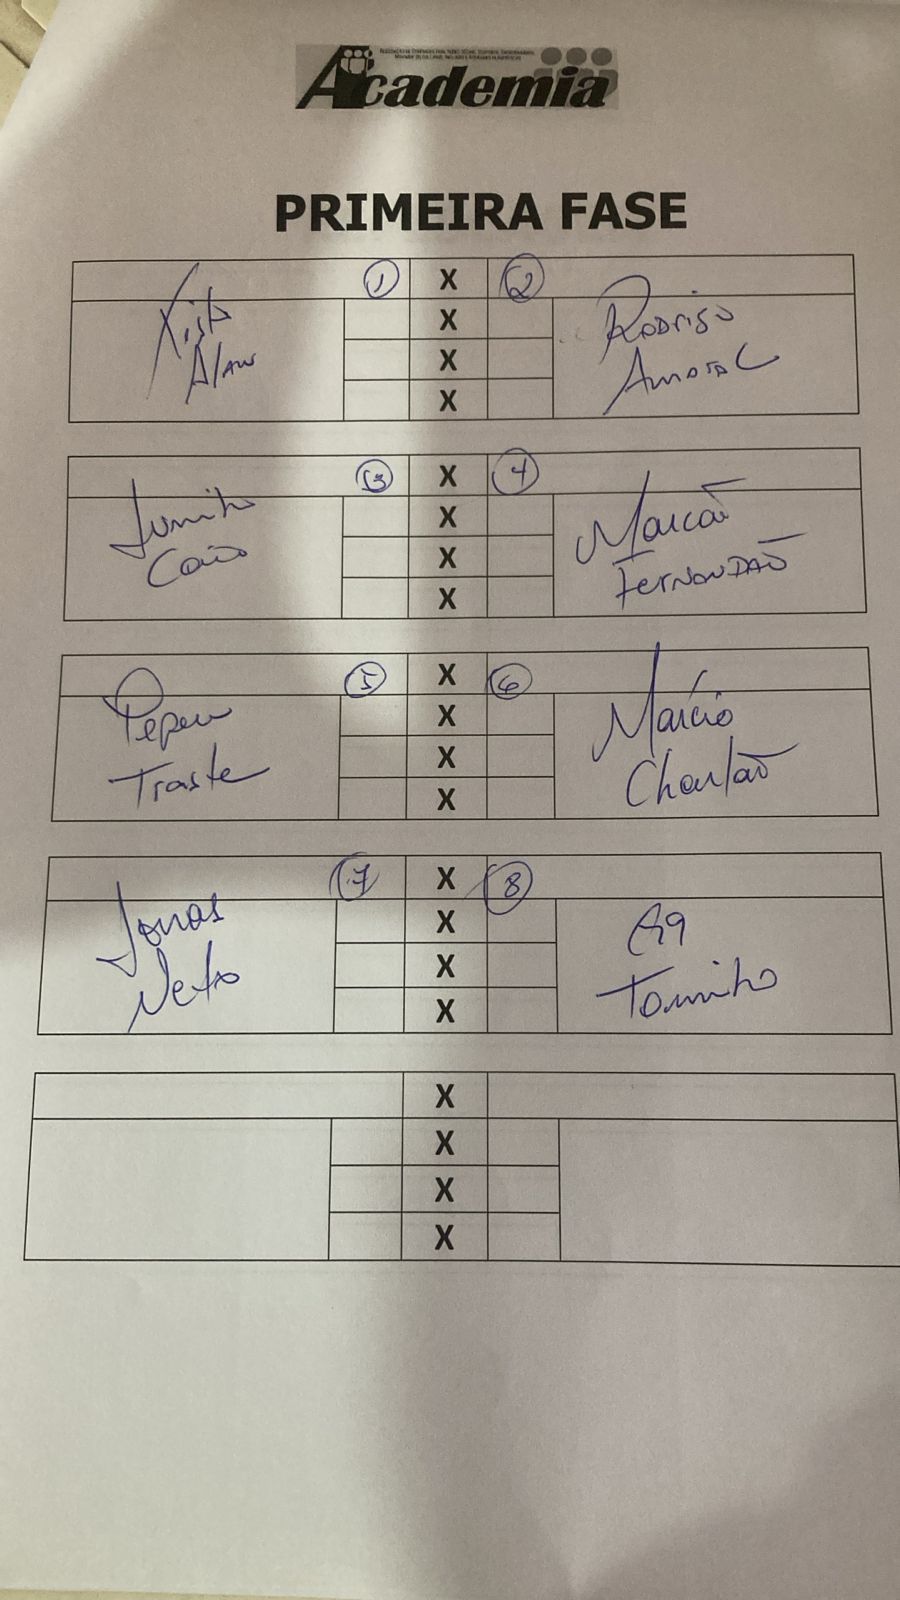 Academia
PRIMEIRA FASE
1 X 2
X
X
X
Alan
Rodrigo
Amaral
3 X 4
X
X
X
Juninho
Caio
Marcão
FERNANDÃO
5 X 6
X
X
X
Pepeu
Traste
Márcio
Charlão
7 X 8
X
X
X
Jonas
Neto
Toninho
X
X
X
X